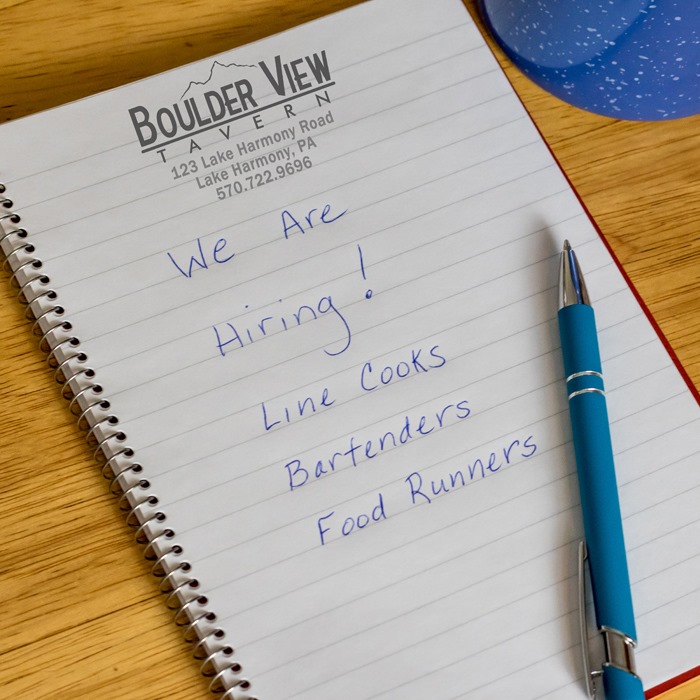 BOULDER VIEW
TAVERN
123 Lake Harmony Road
Lake Harmony, PA
570.722.9696
We Are
Hiring!
Line Cooks
Bartenders
Food Runners